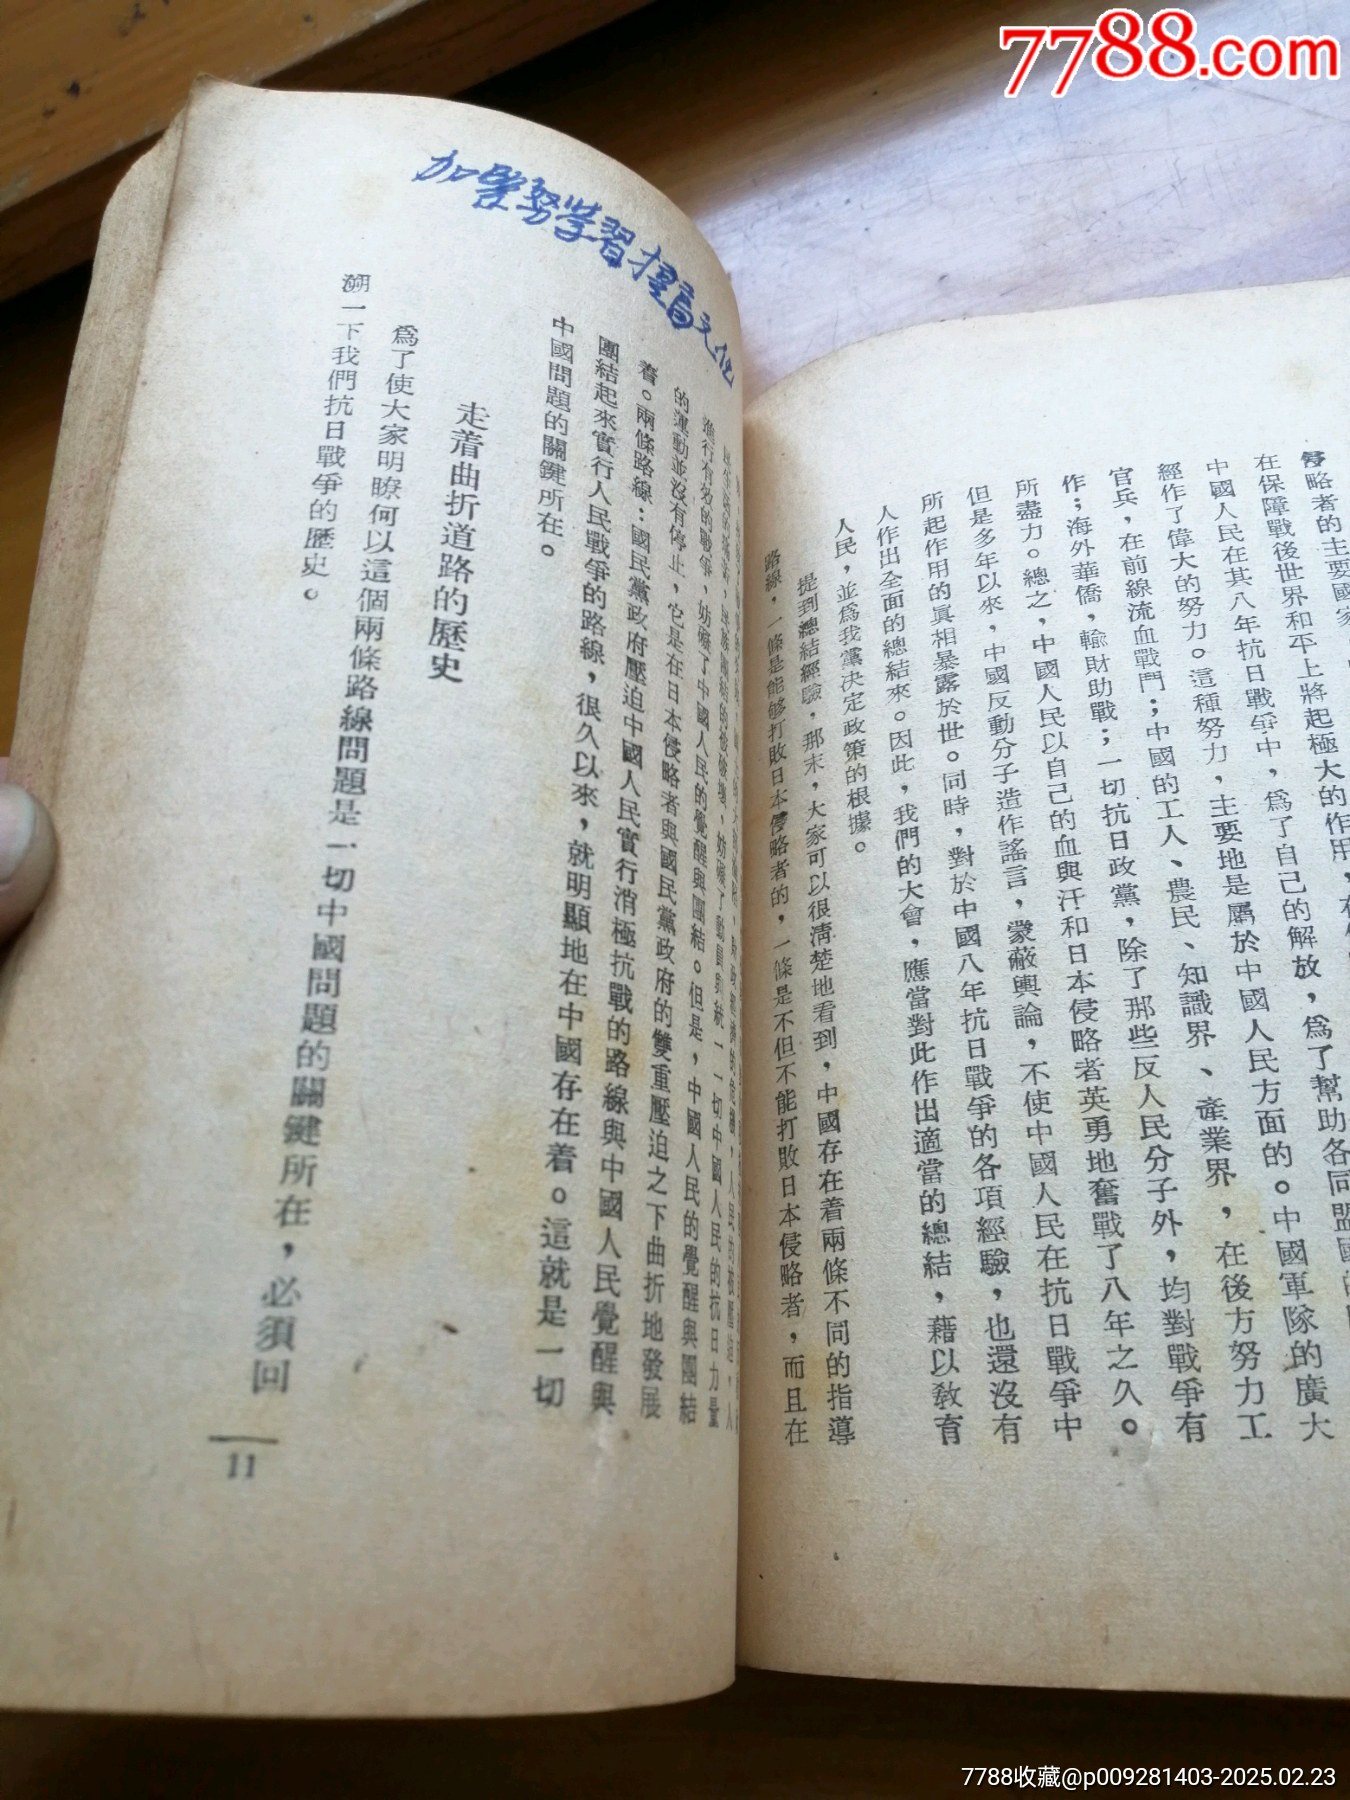 7788.com
侵略者的主要國家
在保障戰後世界和平上將起極大的作用
中國人民在其八年抗日戰爭中，爲了自己的解放，爲了幫助各同盟國
經作了偉大的努力。這種努力，主要地是屬於中國人民方面的。中國軍隊的廣大
官兵，在前線流血戰鬥；中國的工人、農民、知識界、產業界，在後方努力工
作；海外華僑，輸財助戰；一切抗日政黨，除了那些反人民分子外，均對戰爭有
所盡力。總之，中國人民以自己的血與汗和日本侵略者英勇地奮戰了八年之久。
但是多年以來，中國反動分子造作謠言，蒙蔽輿論，不使中國人民在抗日戰爭中
所起作用的眞相暴露於世。同時，對於中國八年抗日戰爭的各項經驗，也還沒有
人作出全面的總結來。因此，我們的大會，應當對此作出適當的總結，藉以敎育
人民，並爲我黨决定政策的根據。
提到總結經驗，那末，大家可以很清楚地看到，中國存在着兩條不同的指導
路線，一條是能够打敗日本侵略者的，一條是不但不能打敗日本侵略者，而且在
加緊努学習提高文化
進行有效的戰爭，妨礙了中國人民的覺醒與團結。但是，中國人民的覺醒與團結
的運動並沒有停止，它是在日本侵略者與國民黨政府的雙重壓迫之下曲折地發展
着。兩條路線：國民黨政府壓迫中國人民實行消極抗戰的路線與中國人民覺醒與
團結起來實行人民戰爭的路線，很久以來，就明顯地在中國存在着。這就是一切
中國問題的關鍵所在。
走着曲折道路的歷史
爲了使大家明瞭何以這個兩條路線問題是一切中國問題的關鍵所在，必須回
溯一下我們抗日戰爭的歷史。
11
7788收藏@p009281403-2025.02.23